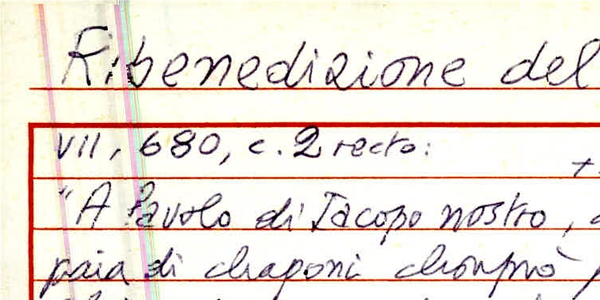 Ribenedizione del
VII, 680, c. 2 recto:
"A Pavolo di Jacopo nostro,
paia di chaponi chonprò